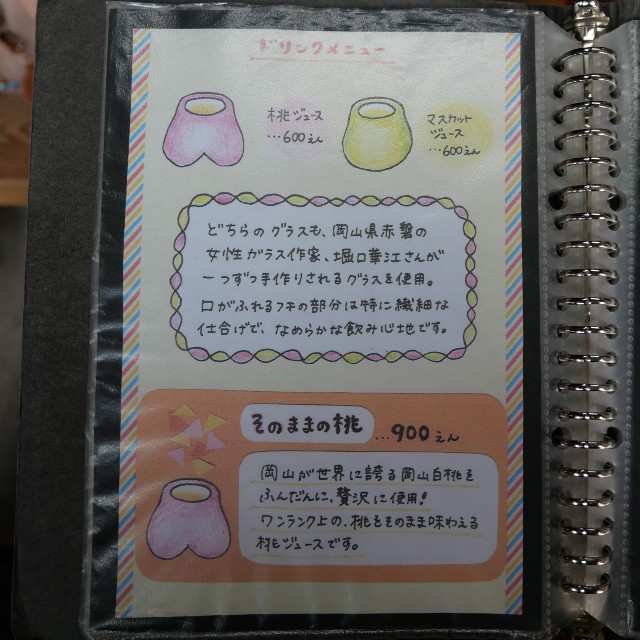 ドリンクメニュー
桃ジュース
…600えん
マスカット
ジュース
…600えん
どちらのグラスも、岡山県赤磐の
女性ガラス作家、堀口華江さんが
一つずつ手作りされるグラスを使用。
口がふれるフチの部分は特に繊細な
仕上げで、なめらかな飲み心地です。
そのままの桃 …900えん
岡山が世界に誇る岡山白桃を
ふんだんに、贅沢に使用!
ワンランク上の、桃をそのまま味わえる
桃ジュースです。